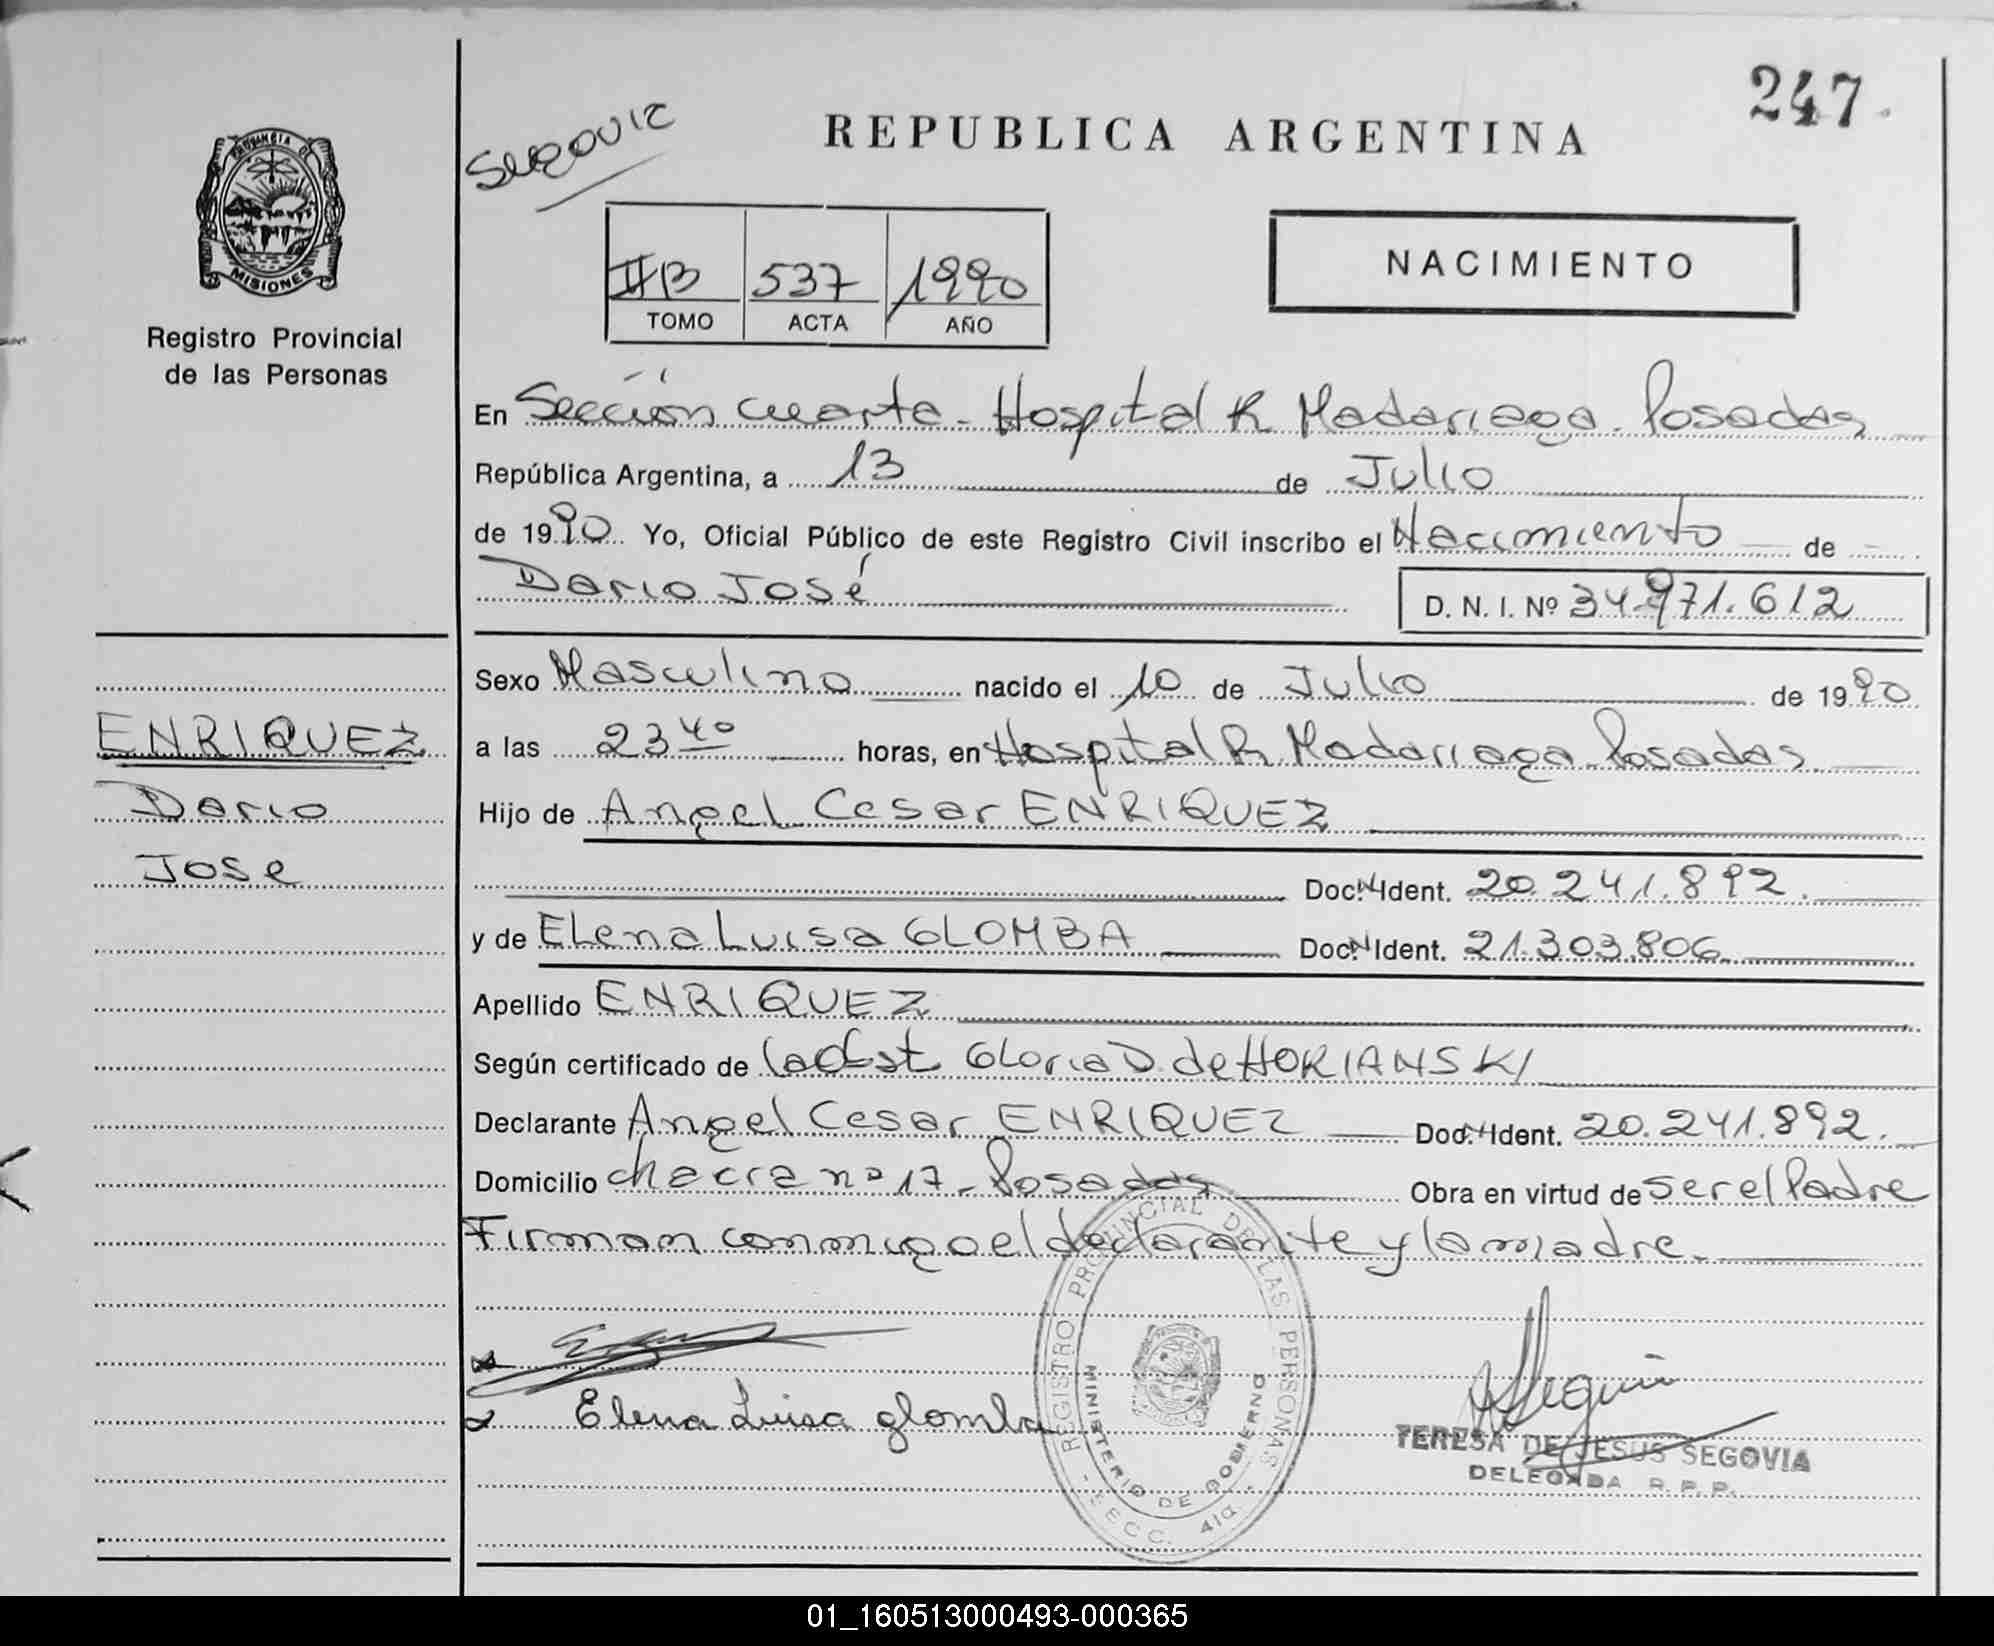 247
REPUBLICA ARGENTINA
Segovia
PROVINCIA DE
MISIONES
Registro Provincial
de las Personas
IIB 537 1990
TOMO ACTA AÑO
NACIMIENTO
En Sección cuarta - Hospital R Madariaga - Posadas
República Argentina, a 13 de Julio
de 1990 Yo, Oficial Público de este Registro Civil inscribo el Nacimiento de
Dario José D. N. I. Nº 34.971.612
Sexo Masculino nacido el 10 de Julio de 1990
a las 23 40 horas, en Hospital R. Madariaga - Posadas
Hijo de Angel Cesar ENRIQUEZ
Doc. N. Ident. 20.241.892.
y de Elena Luisa GLOMBA Doc. N. Ident. 21.303.806.
Apellido ENRIQUEZ
Según certificado de la Obst Gloria D. de HORIANSKI
Declarante Angel Cesar ENRIQUEZ Doc. N. Ident. 20.241.892.
Domicilio chacra nº 17 - Posadas Obra en virtud de ser el Padre
Firman conmigo el declarante y la madre.
ENRIQUEZ
Dario
Jose
Elena Luisa glomba
REGISTRO PROVINCIAL DE LAS PERSONAS
MINISTERIO DE GOBIERNO
- SECC. 4ta. -
TERESA DE JESUS SEGOVIA
DELEGADA R. P. P.
01_160513000493-000365